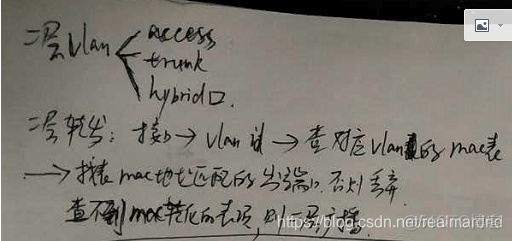 二层vlan
access
trunk
hybrid口.
二层转发: 接口→vlan →查对应vlan的mac表
→ 找表mac地址匹配的出端口. 否则丢弃
查不到mac转发的表项, 则二层广播.
https://blog.csdn.net/realmardrid